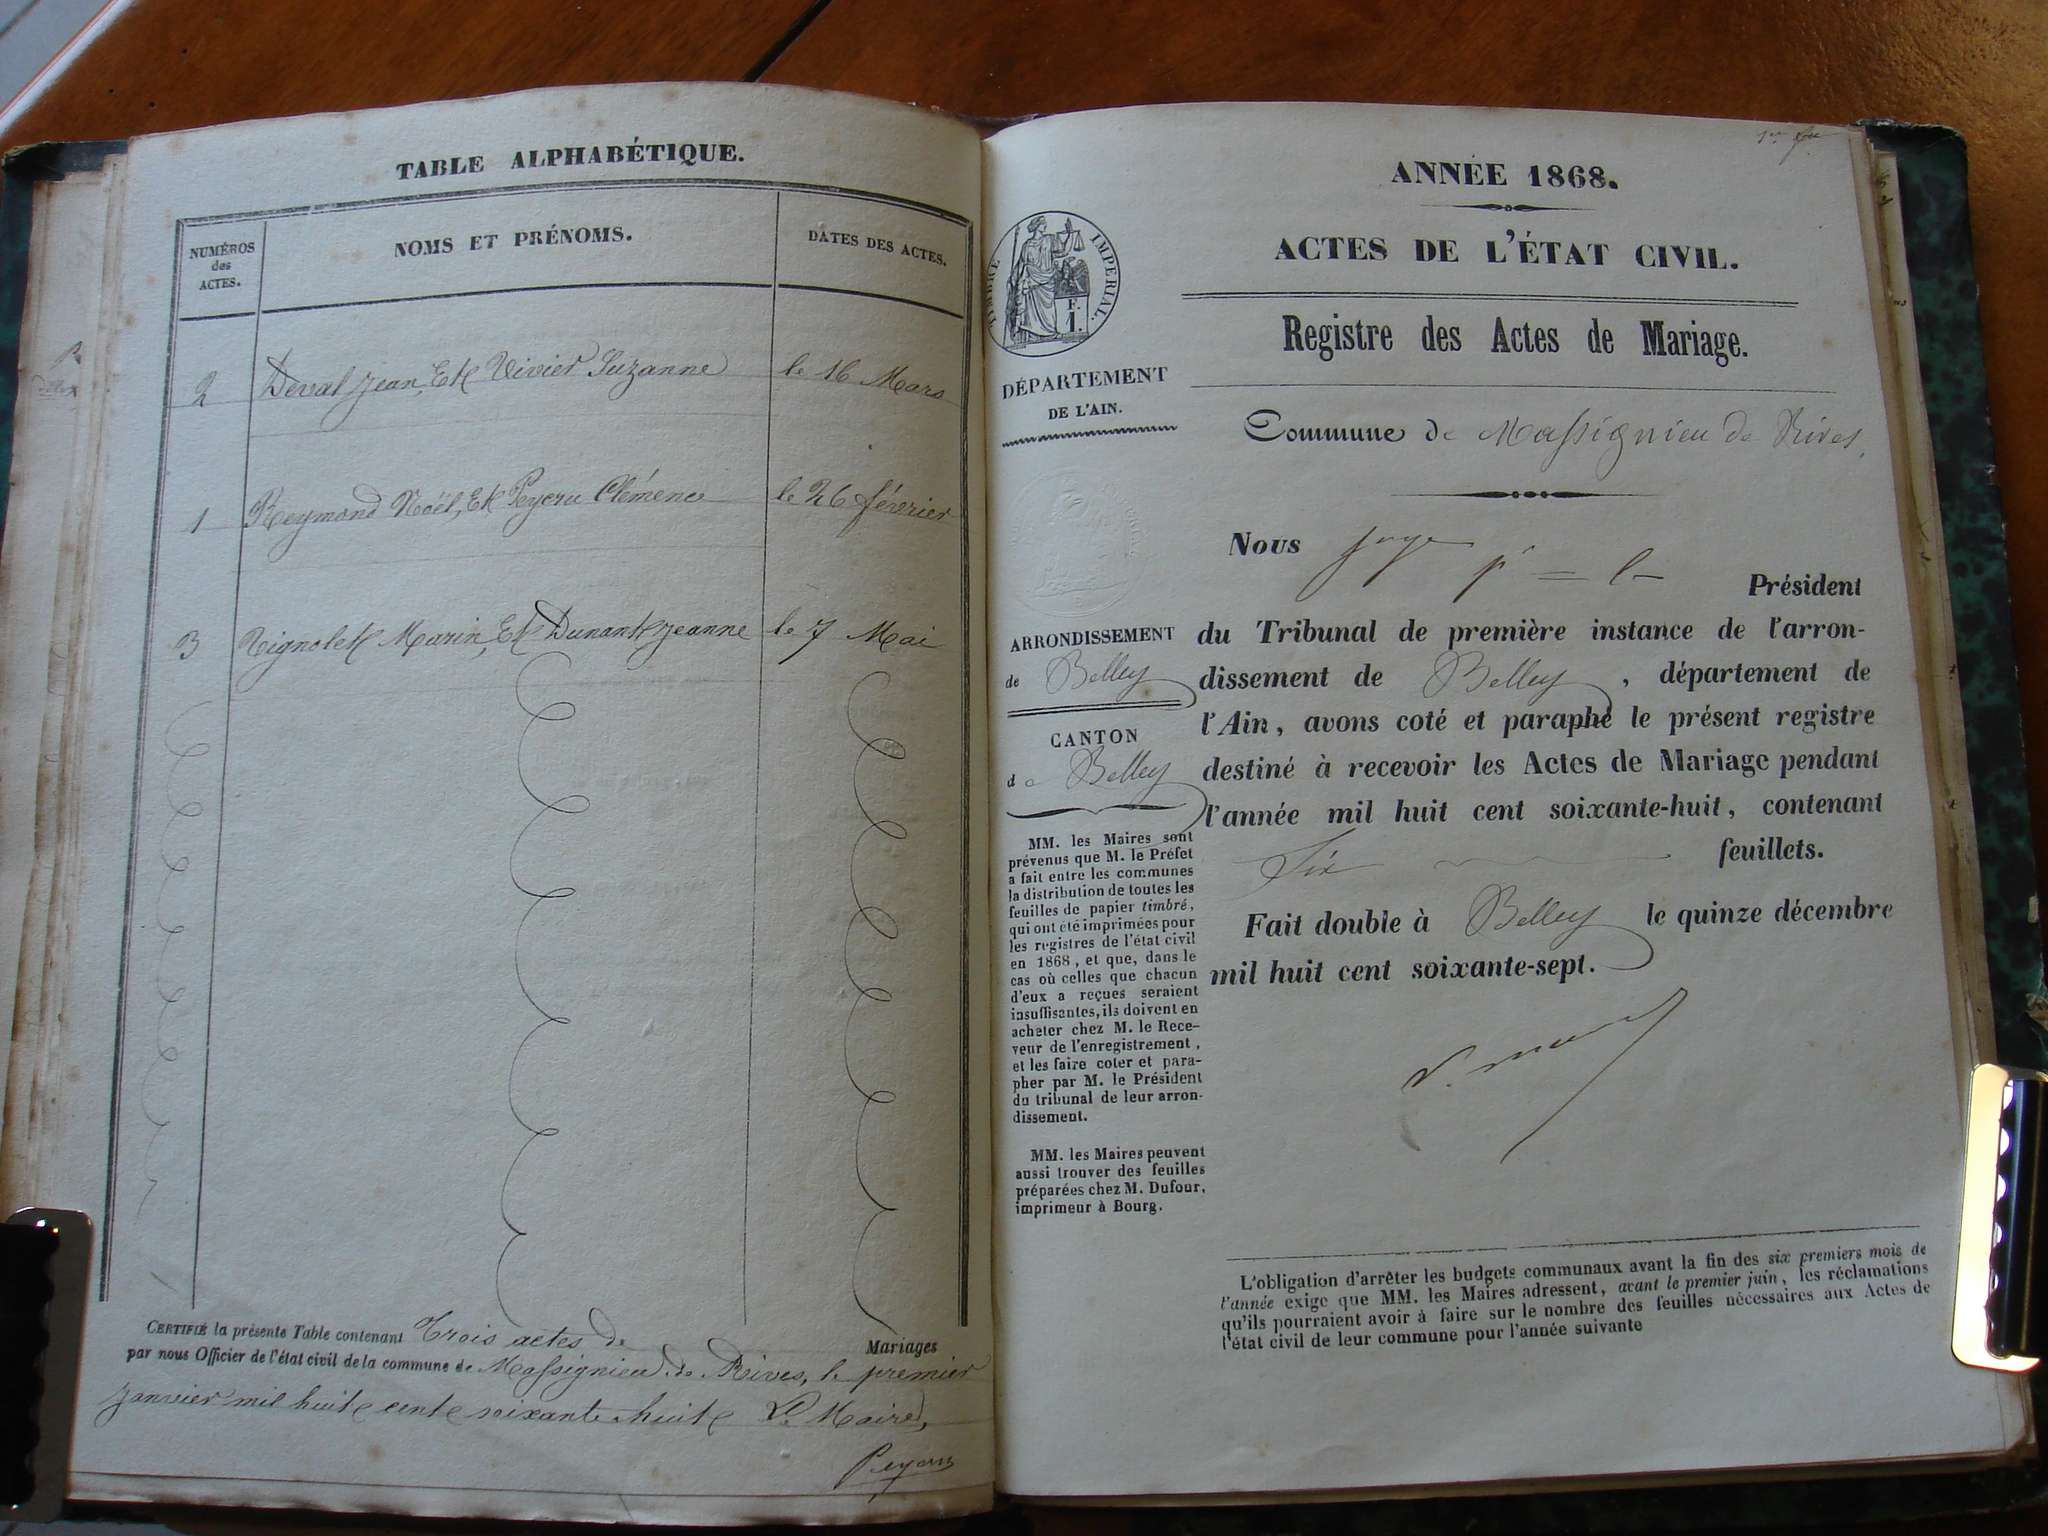 TABLE ALPHABÉTIQUE.
NUMÉROS
des
ACTES.
NOMS ET PRÉNOMS.
DATES DES ACTES.
2 Deval Jean, Et Vivier Suzanne le 16 Mars
1 Reymond Noël, Et Peycru Clémence le 26 février
3 Vignolet Marin, Et Dunant Jeanne le 7 Mai
CERTIFIÉ la présente Table contenant Trois actes de Mariages
par nous Officier de l'état civil de la commune de Massignieu de Rives, le premier
janvier mil huit cent soixante huit Le Maire,
ANNÉE 1868.
ACTES DE L'ÉTAT CIVIL.
Registre des Actes de Mariage.
TIMBRE IMPERIAL.
F.
1.
DÉPARTEMENT
DE L'AIN.
Commune de Massignieu de Rives.
Nous juge pr le Président
du Tribunal de première instance de l'arron-
dissement de Belley, département de
l'Ain, avons coté et paraphé le présent registre
destiné à recevoir les Actes de Mariage pendant
l'année mil huit cent soixante-huit, contenant
Six feuillets.
Fait double à Belley le quinze décembre
mil huit cent soixante-sept.
ARRONDISSEMENT
de Belley
CANTON
de Belley
MM. les Maires sont
prévenus que M. le Préfet
a fait entre les communes
la distribution de toutes les
feuilles de papier timbré,
qui ont été imprimées pour
les registres de l'état civil
en 1868, et que, dans le
cas où celles que chacun
d'eux a reçues seraient
insuffisantes, ils doivent en
acheter chez M. le Rece-
veur de l'enregistrement,
et les faire coter et para-
pher par M. le Président
du tribunal de leur arron-
dissement.
MM. les Maires peuvent
aussi trouver des feuilles
préparées chez M. Dufour,
imprimeur à Bourg.
L'obligation d'arrêter les budgets communaux avant la fin des six premiers mois de
l'année exige que MM. les Maires adressent, avant le premier juin, les réclamations
qu'ils pourraient avoir à faire sur le nombre des feuilles nécessaires aux Actes de
l'état civil de leur commune pour l'année suivante